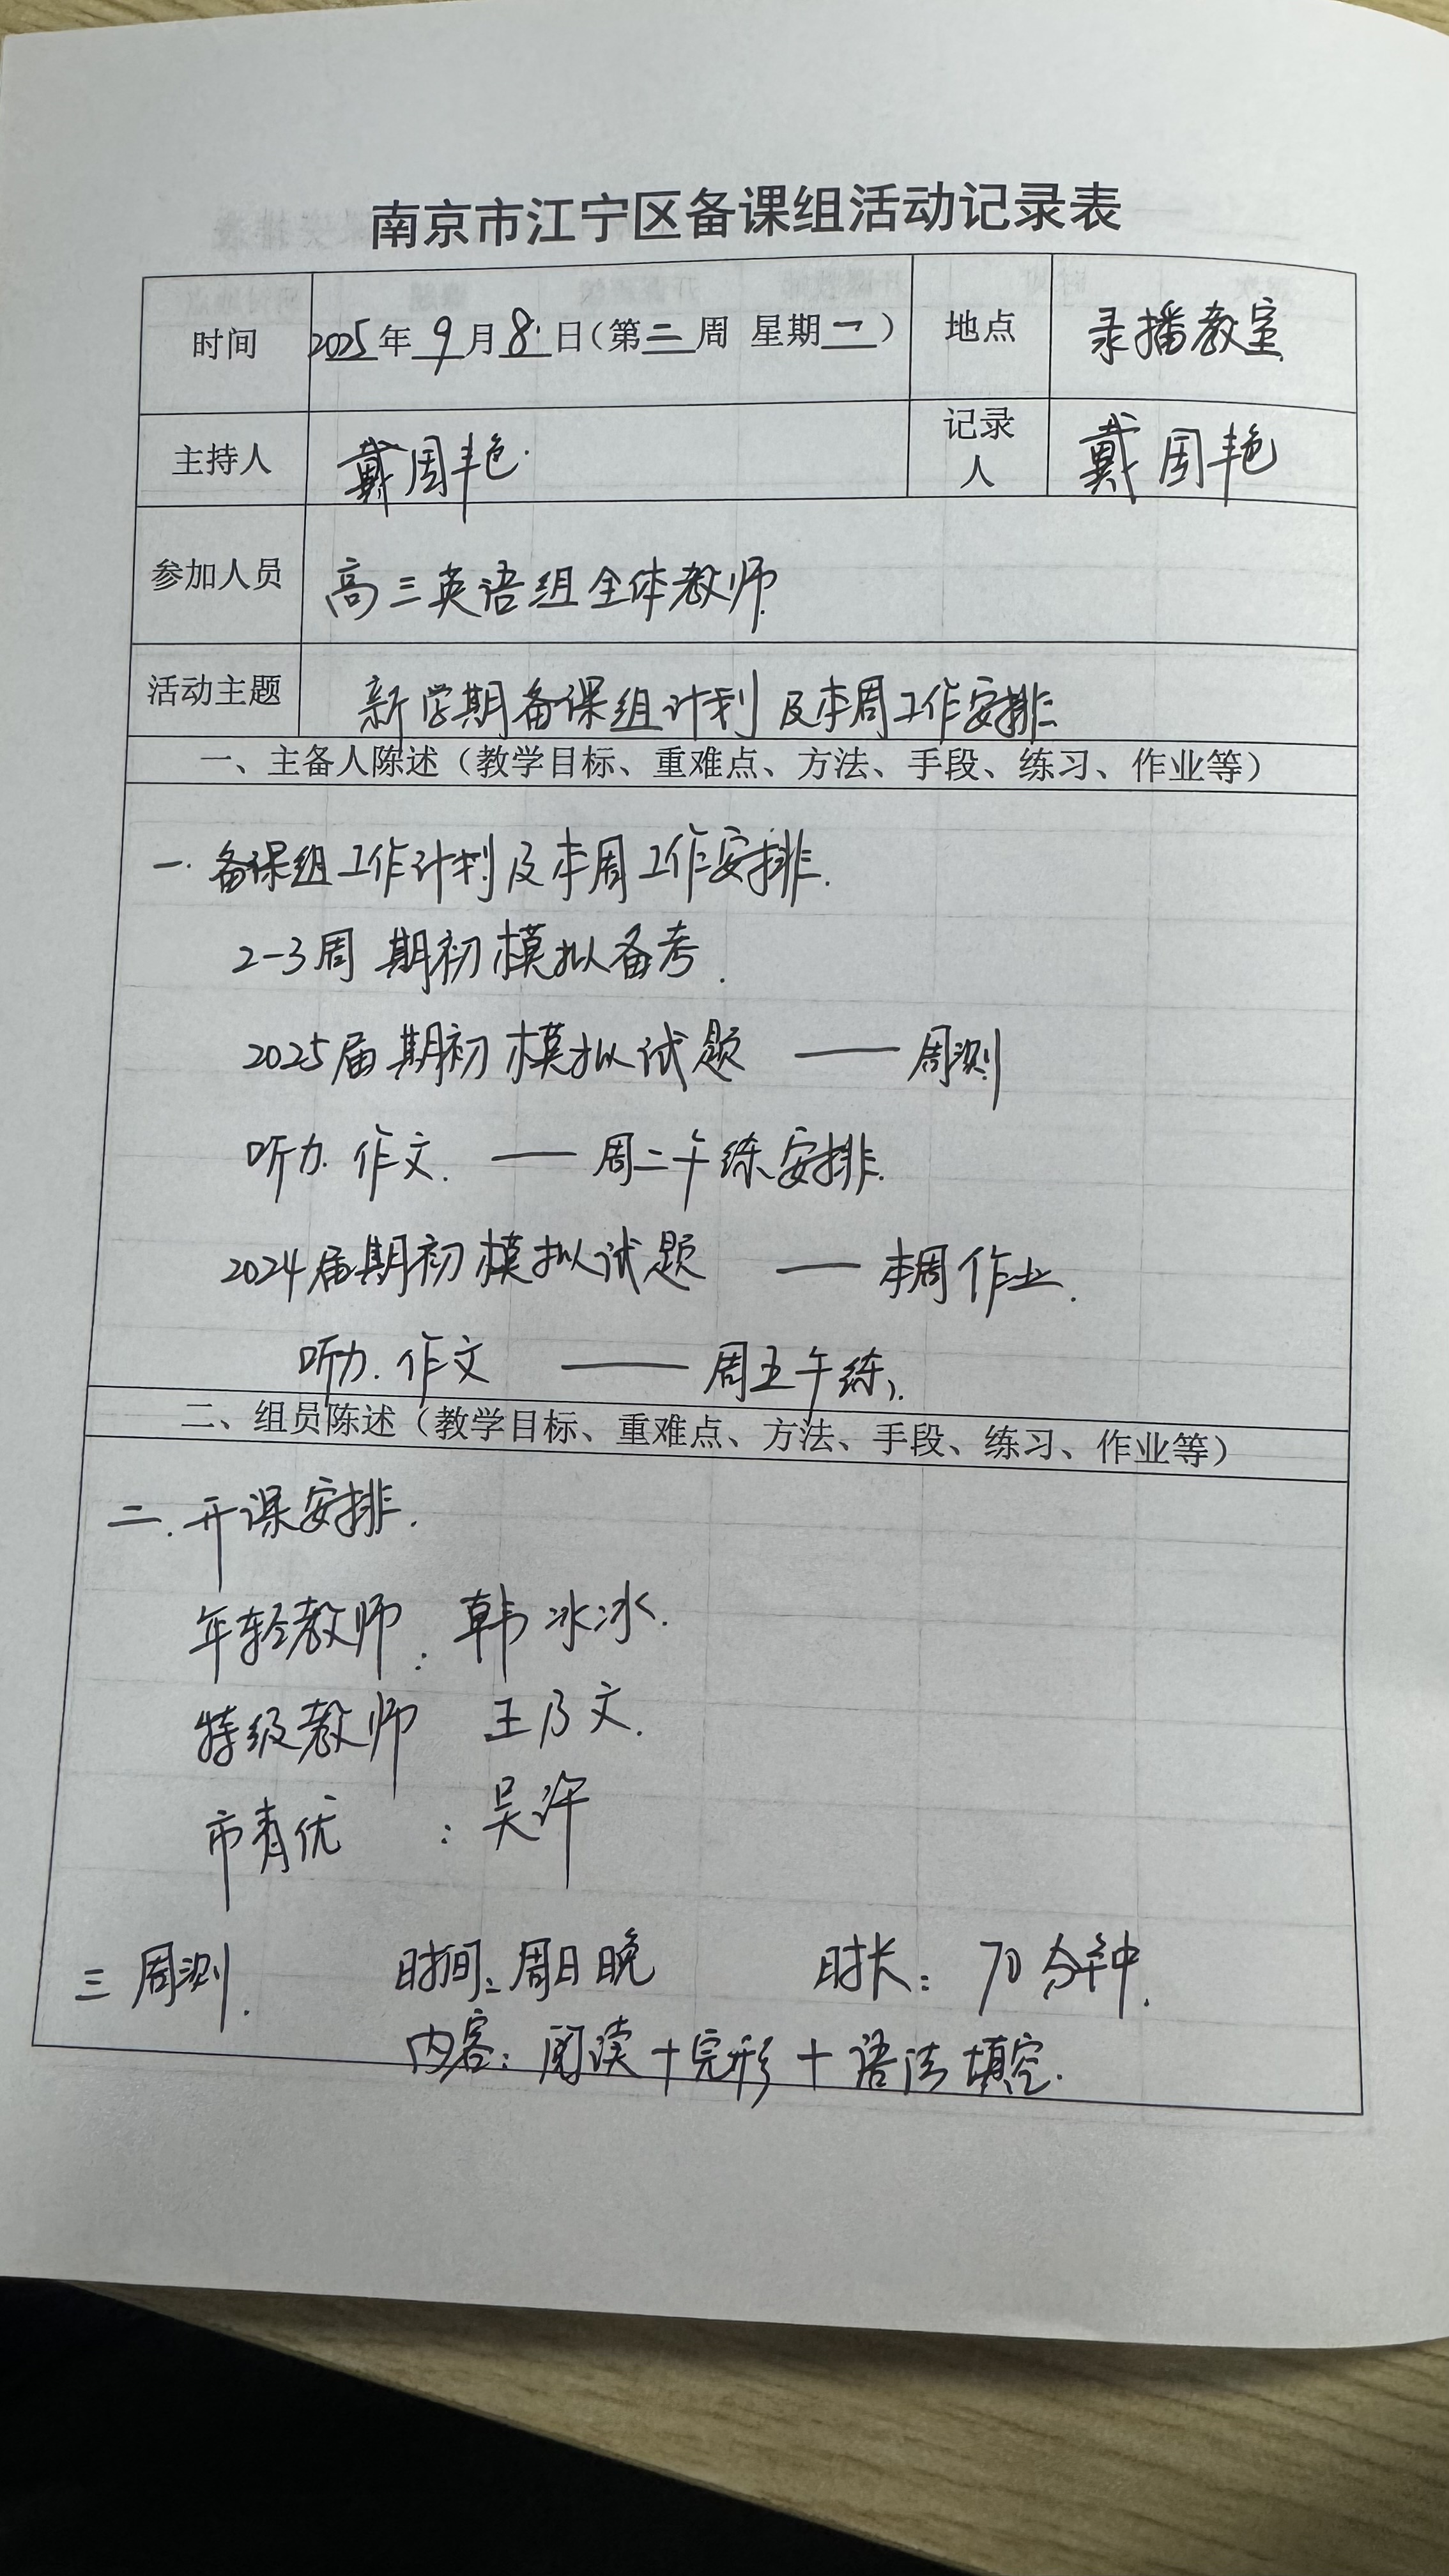 南京市江宁区备课组活动记录表
时间 2025年9月8日（第二周 星期一） 地点 录播教室
主持人 戴周艳 记录人 戴周艳
参加人员 高三英语组全体教师
活动主题 新学期备课组计划及本周工作安排
一、主备人陈述（教学目标、重难点、方法、手段、练习、作业等）
一.备课组工作计划及本周工作安排.
2-3周 期初模拟备考.
2025届期初模拟试题 —— 周测
听力.作文. —— 周二午练安排.
2024届期初模拟试题 —— 本周作业.
听力.作文 —— 周五午练.
二、组员陈述（教学目标、重难点、方法、手段、练习、作业等）
二.开课安排.
年轻教师: 韩冰冰.
特级教师 王乃文.
市青优 : 吴许
三 周测. 时间:周日晚 时长:70分钟.
内容:阅读+完形+语法填空.